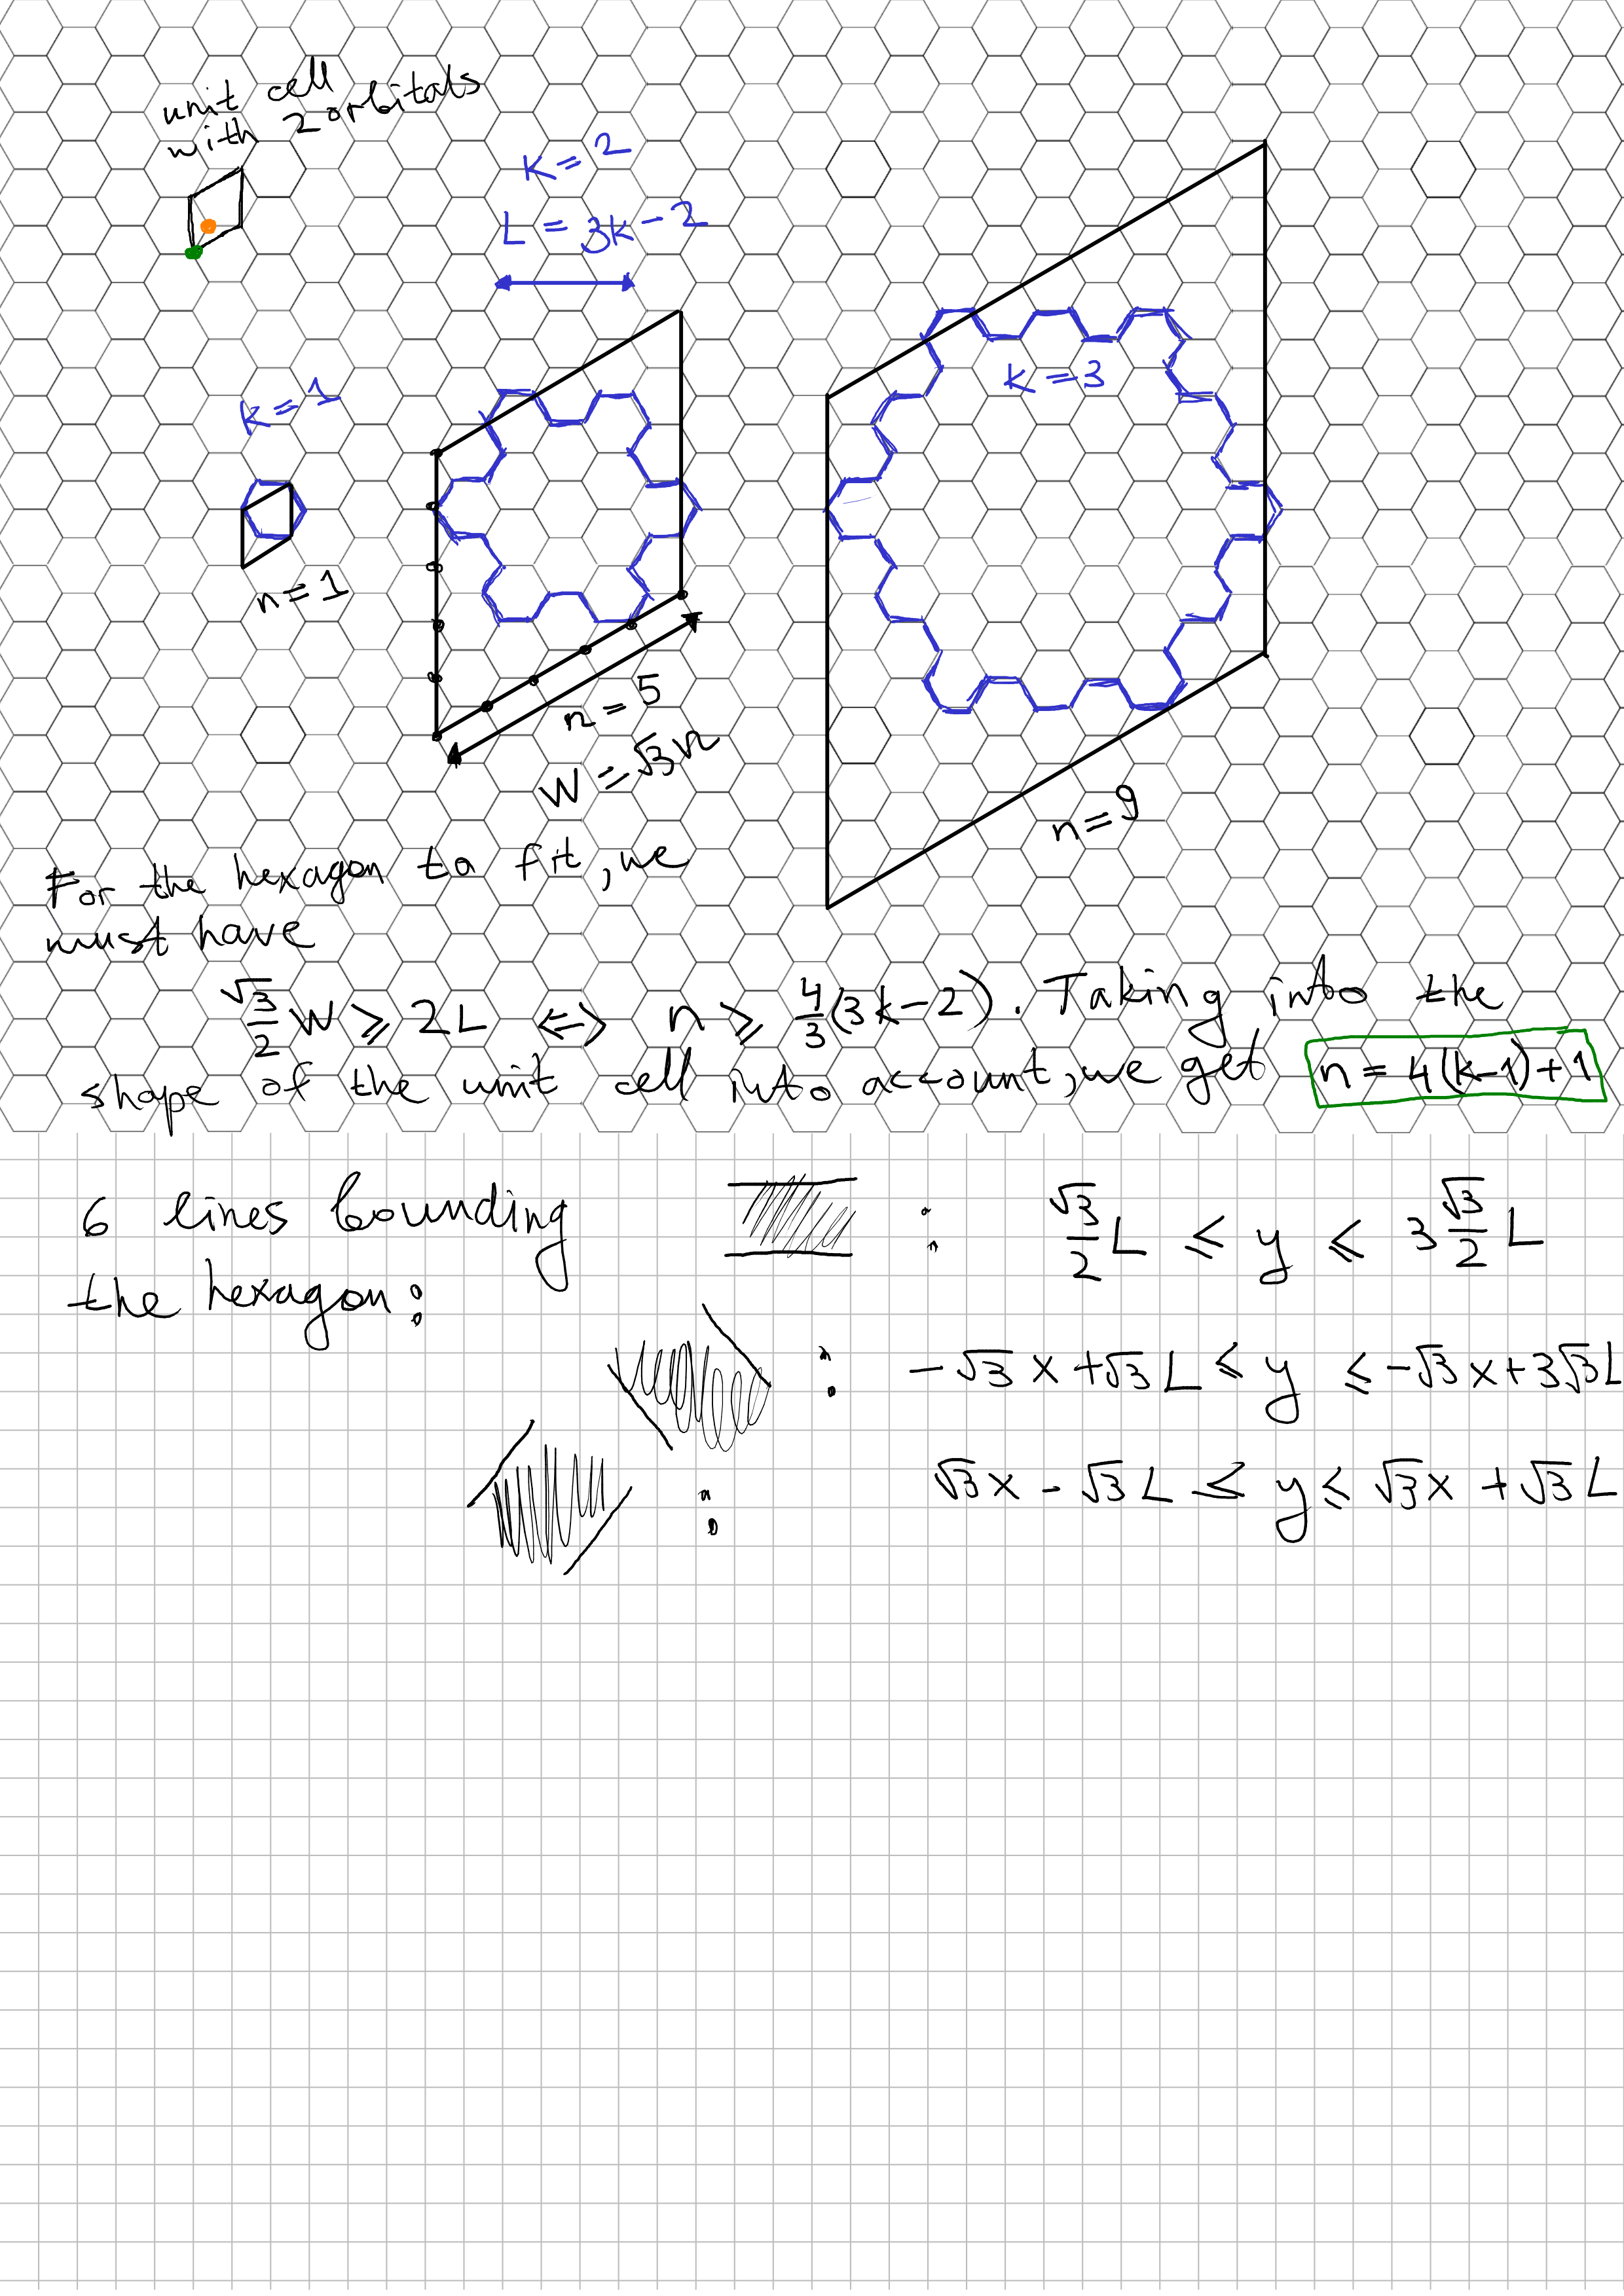 unit cell
with 2 orbitals
K = 2
L = 3k - 2
K = 1
n = 1
K = 3
n = 5
W = √3 n
n = 9
For the hexagon to fit, we
must have
√3/2 W ⩾ 2L ⇔ n ⩾ 4/3 (3k - 2). Taking into the
shape of the unit cell into account, we get n = 4(k-1)+1
6 lines bounding
the hexagon:
: √3/2 L ≤ y ≤ 3 √3/2 L
: -√3 x + √3 L ≤ y ≤ -√3 x + 3√3 L
: √3 x - √3 L ≤ y ≤ √3 x + √3 L